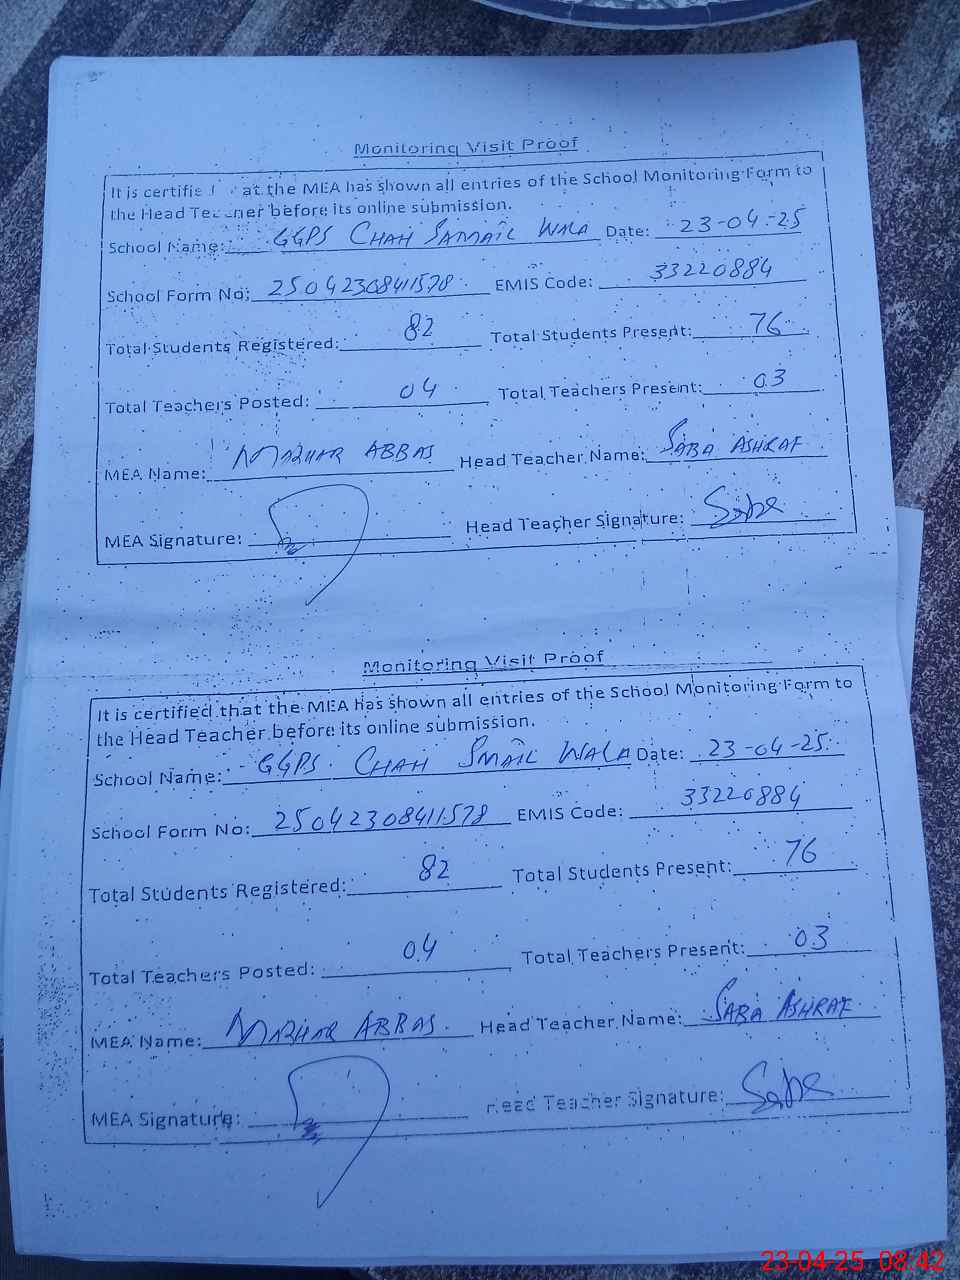 Monitoring Visit Proof
It is certifie at the MEA has shown all entries of the School Monitoring Form to
the Head Teacher before its online submission.
School Name: GGPS CHAH SAMAIL WALA Date: 23-04-25
School Form No: 25042308411578 EMIS Code: 33220884
Total Students Registered: 82 Total Students Present: 76
Total Teachers Posted: 04 Total Teachers Present: 03
MEA Name: MAZHAR ABBAS Head Teacher Name: SABA ASHRAF
MEA Signature: Head Teacher Signature: Saba
Monitoring Visit Proof
It is certified that the MEA has shown all entries of the School Monitoring Form to
the Head Teacher before its online submission.
School Name: GGPS CHAH SMAIL WALA Date: 23-04-25
School Form No: 25042308411578 EMIS Code: 33220884
Total Students Registered: 82 Total Students Present: 76
Total Teachers Posted: 04 Total Teachers Present: 03
MEA Name: MAZHAR ABBAS Head Teacher Name: SABA ASHRAF
MEA Signature: Head Teacher Signature: Saba
23-04-25 08:42